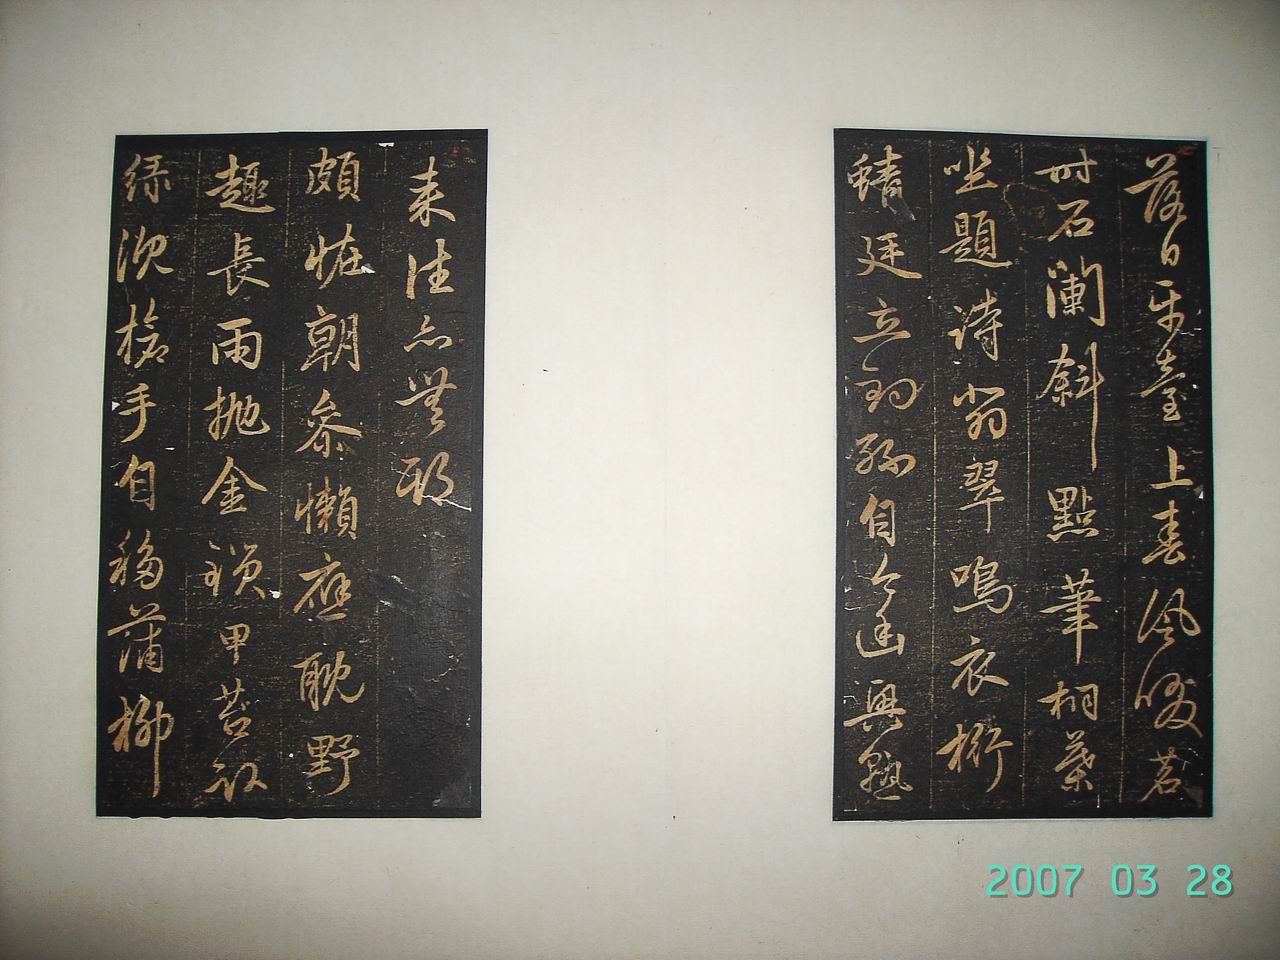 落日平臺上春風啜茗
時石闌斜點筆桐葉
坐題詩翡翠鳴衣桁
蜻廷立釣絲自今幽興熟
來往亦無期
頗怪朝參懶應耽野
趣長雨拋金鎖甲苔臥
綠沉槍手自移蒲柳
2007 03 28